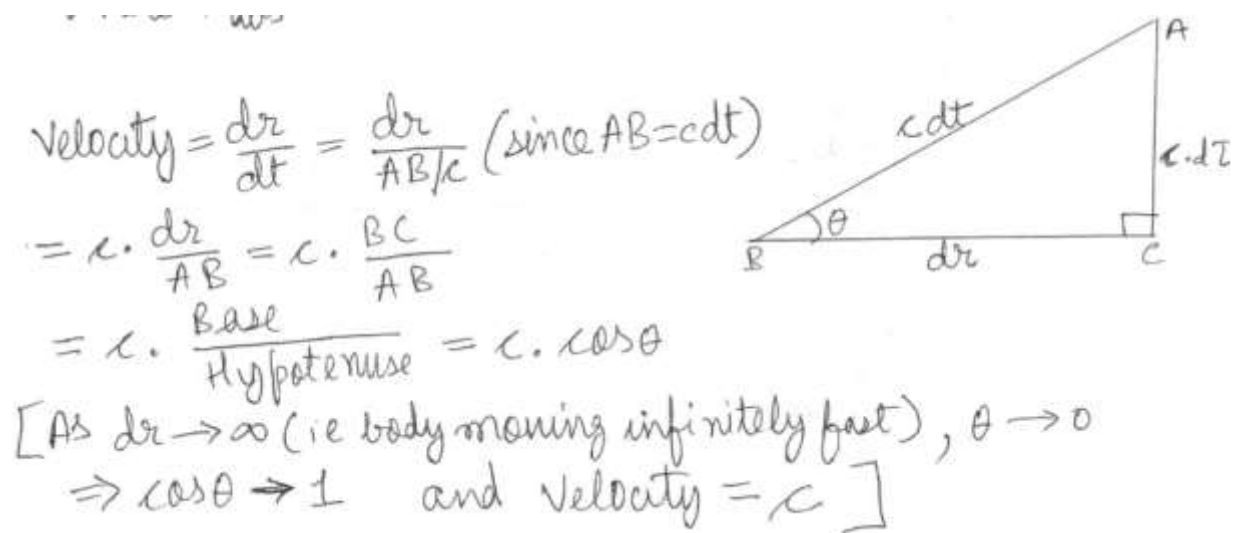 Velocity = dr/dt = dr/(AB/c) (since AB=cdt)
= c. dr/AB = c. BC/AB
= c. Base/Hypotenuse = c. cosθ
[As dr→∞ (ie body moving infinitely fast), θ→0
⇒ cosθ → 1 and Velocity = c]
A
cdt
c.dτ
θ
B
dr
C